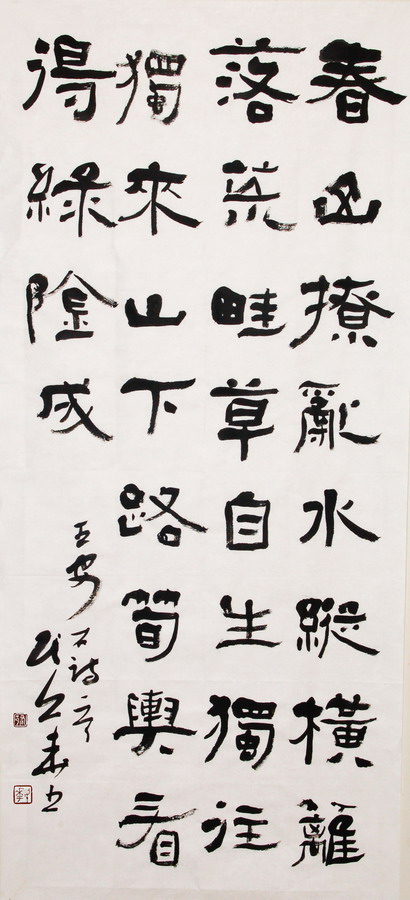 春山撩亂水縱橫籬
落荒畦草自生獨往
獨來山下路筍輿看
得綠陰成
王安石詩一